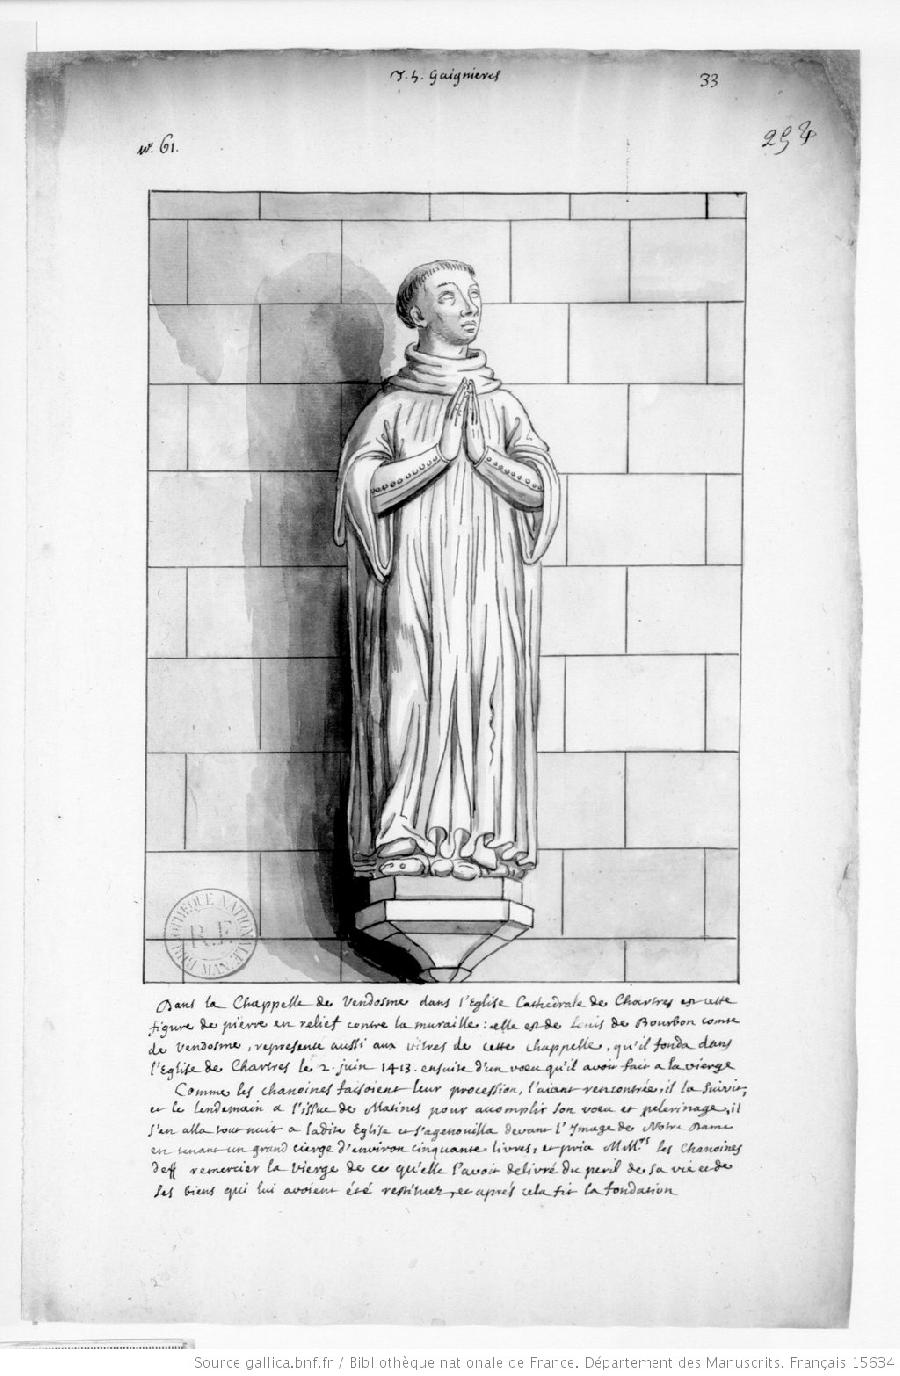 J. h. Gaignieres
33
nº. 61.
254
BIBLIOTHEQUE NATIONALE MAN
R.F.
Dans la Chappelle de Vendosme dans l'Eglise Cathedrale de Chartres est cette
figure de pierre en relief contre la muraille: elle est de Louis de Bourbon comte
de Vendosme, represente aussi aux vitres de cette chappelle, qu'il fonda dans
l'Eglise de Chartres le 2. juin 1413. ensuite d'un voeu qu'il avoit fait a la vierge
Comme les chanoines faisoient leur procession, l'aiant rencontrée, il la suivit,
et le lendemain a l'issue de Matines pour acomplir son voeu et pelerinage, il
s'en alla tout nuit a ladite Eglise et s'agenouilla devant l'Jmage de Notre Dame
en tenant un grand cierge d'environ cinquante livres, et pria MM.rs les Chanoines
de remercier la vierge de ce qu'elle l'avoit delivré du peril de sa vie et de
ses biens qui lui avoient été restituez, et aprés cela fit la fondation
Source gallica.bnf.fr / Bibliothèque nationale de France. Département des Manuscrits. Français 15634